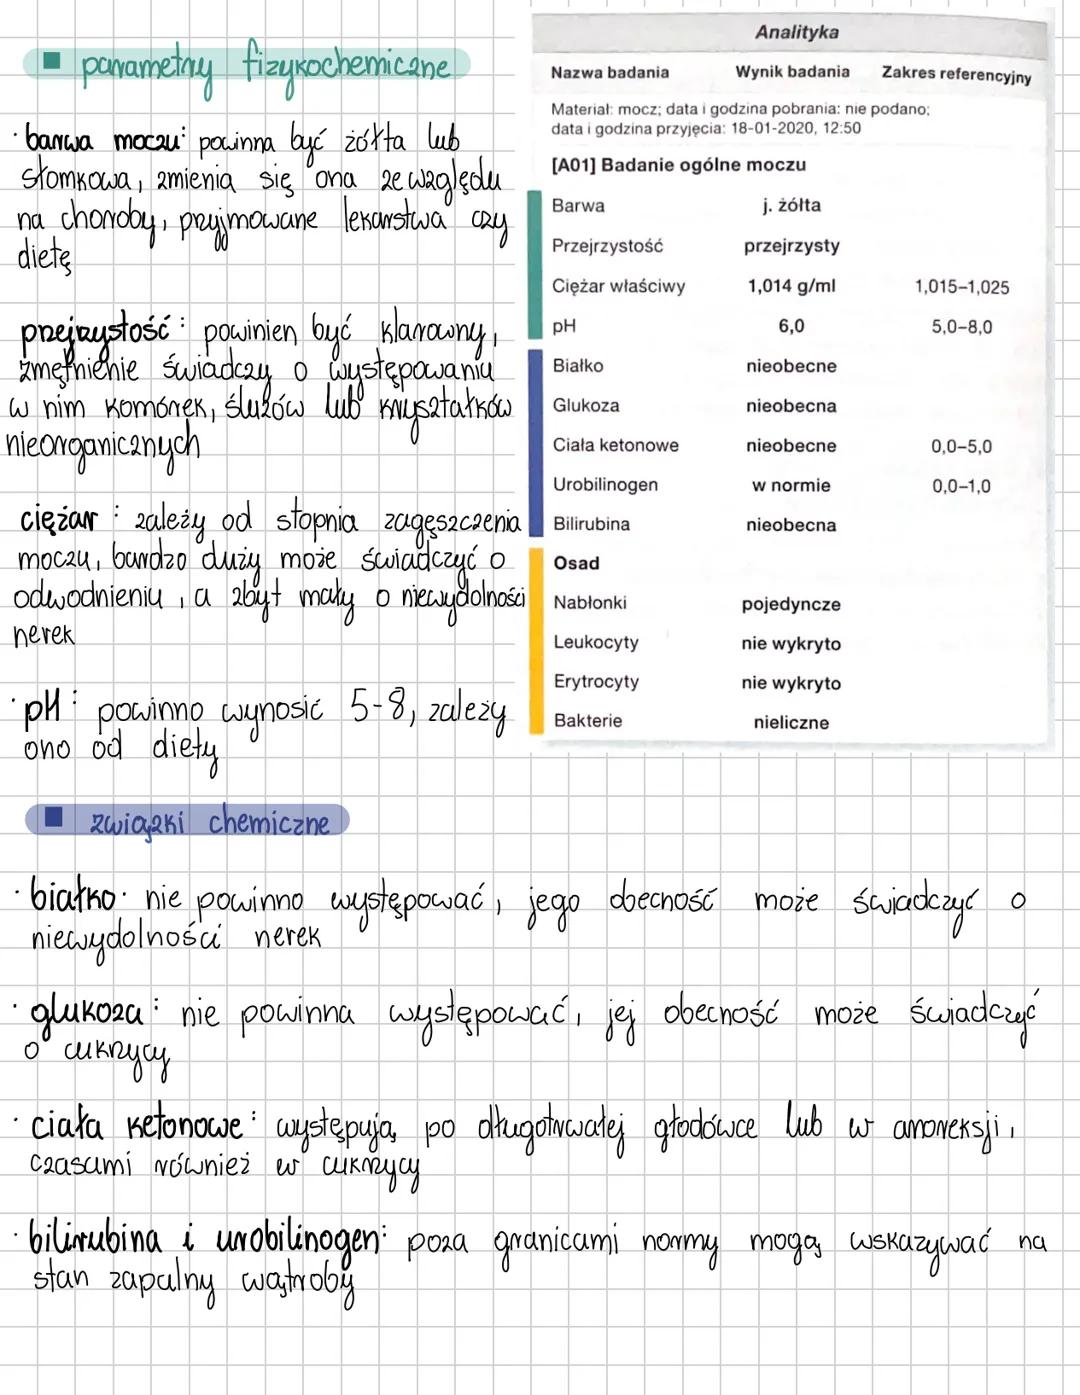 parametry fizykochemiczne
· barwa moczu: powinna być żółta lub
słomkowa, zmienia się ona ze względu
na choroby, przyjmowane lekarstwa czy
dietę
przejrzystość: powinien być klarowny,
zmętnienie świadczy o występowaniu
w nim komórek, śluzów lub kryształków
nieorganicznych
ciężar: zależy od stopnia zagęszczenia
moczu, bardzo duży może świadczyć o
odwodnieniu, a zbyt mały o niewydolności
nerek
· pH: powinno wynosić 5-8, zależy
ono od diety
Analityka
Nazwa badania Wynik badania Zakres referencyjny
Materiał: mocz; data i godzina pobrania: nie podano;
data i godzina przyjęcia: 18-01-2020, 12:50
[A01] Badanie ogólne moczu
Barwa j. żółta
Przejrzystość przejrzysty
Ciężar właściwy 1,014 g/ml 1,015–1,025
pH 6,0 5,0–8,0
Białko nieobecne
Glukoza nieobecna
Ciała ketonowe nieobecne 0,0–5,0
Urobilinogen w normie 0,0–1,0
Bilirubina nieobecna
Osad
Nabłonki pojedyncze
Leukocyty nie wykryto
Erytrocyty nie wykryto
Bakterie nieliczne
związki chemiczne
· białko: nie powinno występować, jego obecność może świadczyć o
niewydolności nerek
· glukoza: nie powinna występować, jej obecność może świadczyć
o cukrzycy
· ciała ketonowe: występują po długotrwałej głodówce lub w anoreksji,
czasami również w cukrzycy
· bilirubina i urobilinogen: poza granicami normy mogą wskazywać na
stan zapalny wątroby